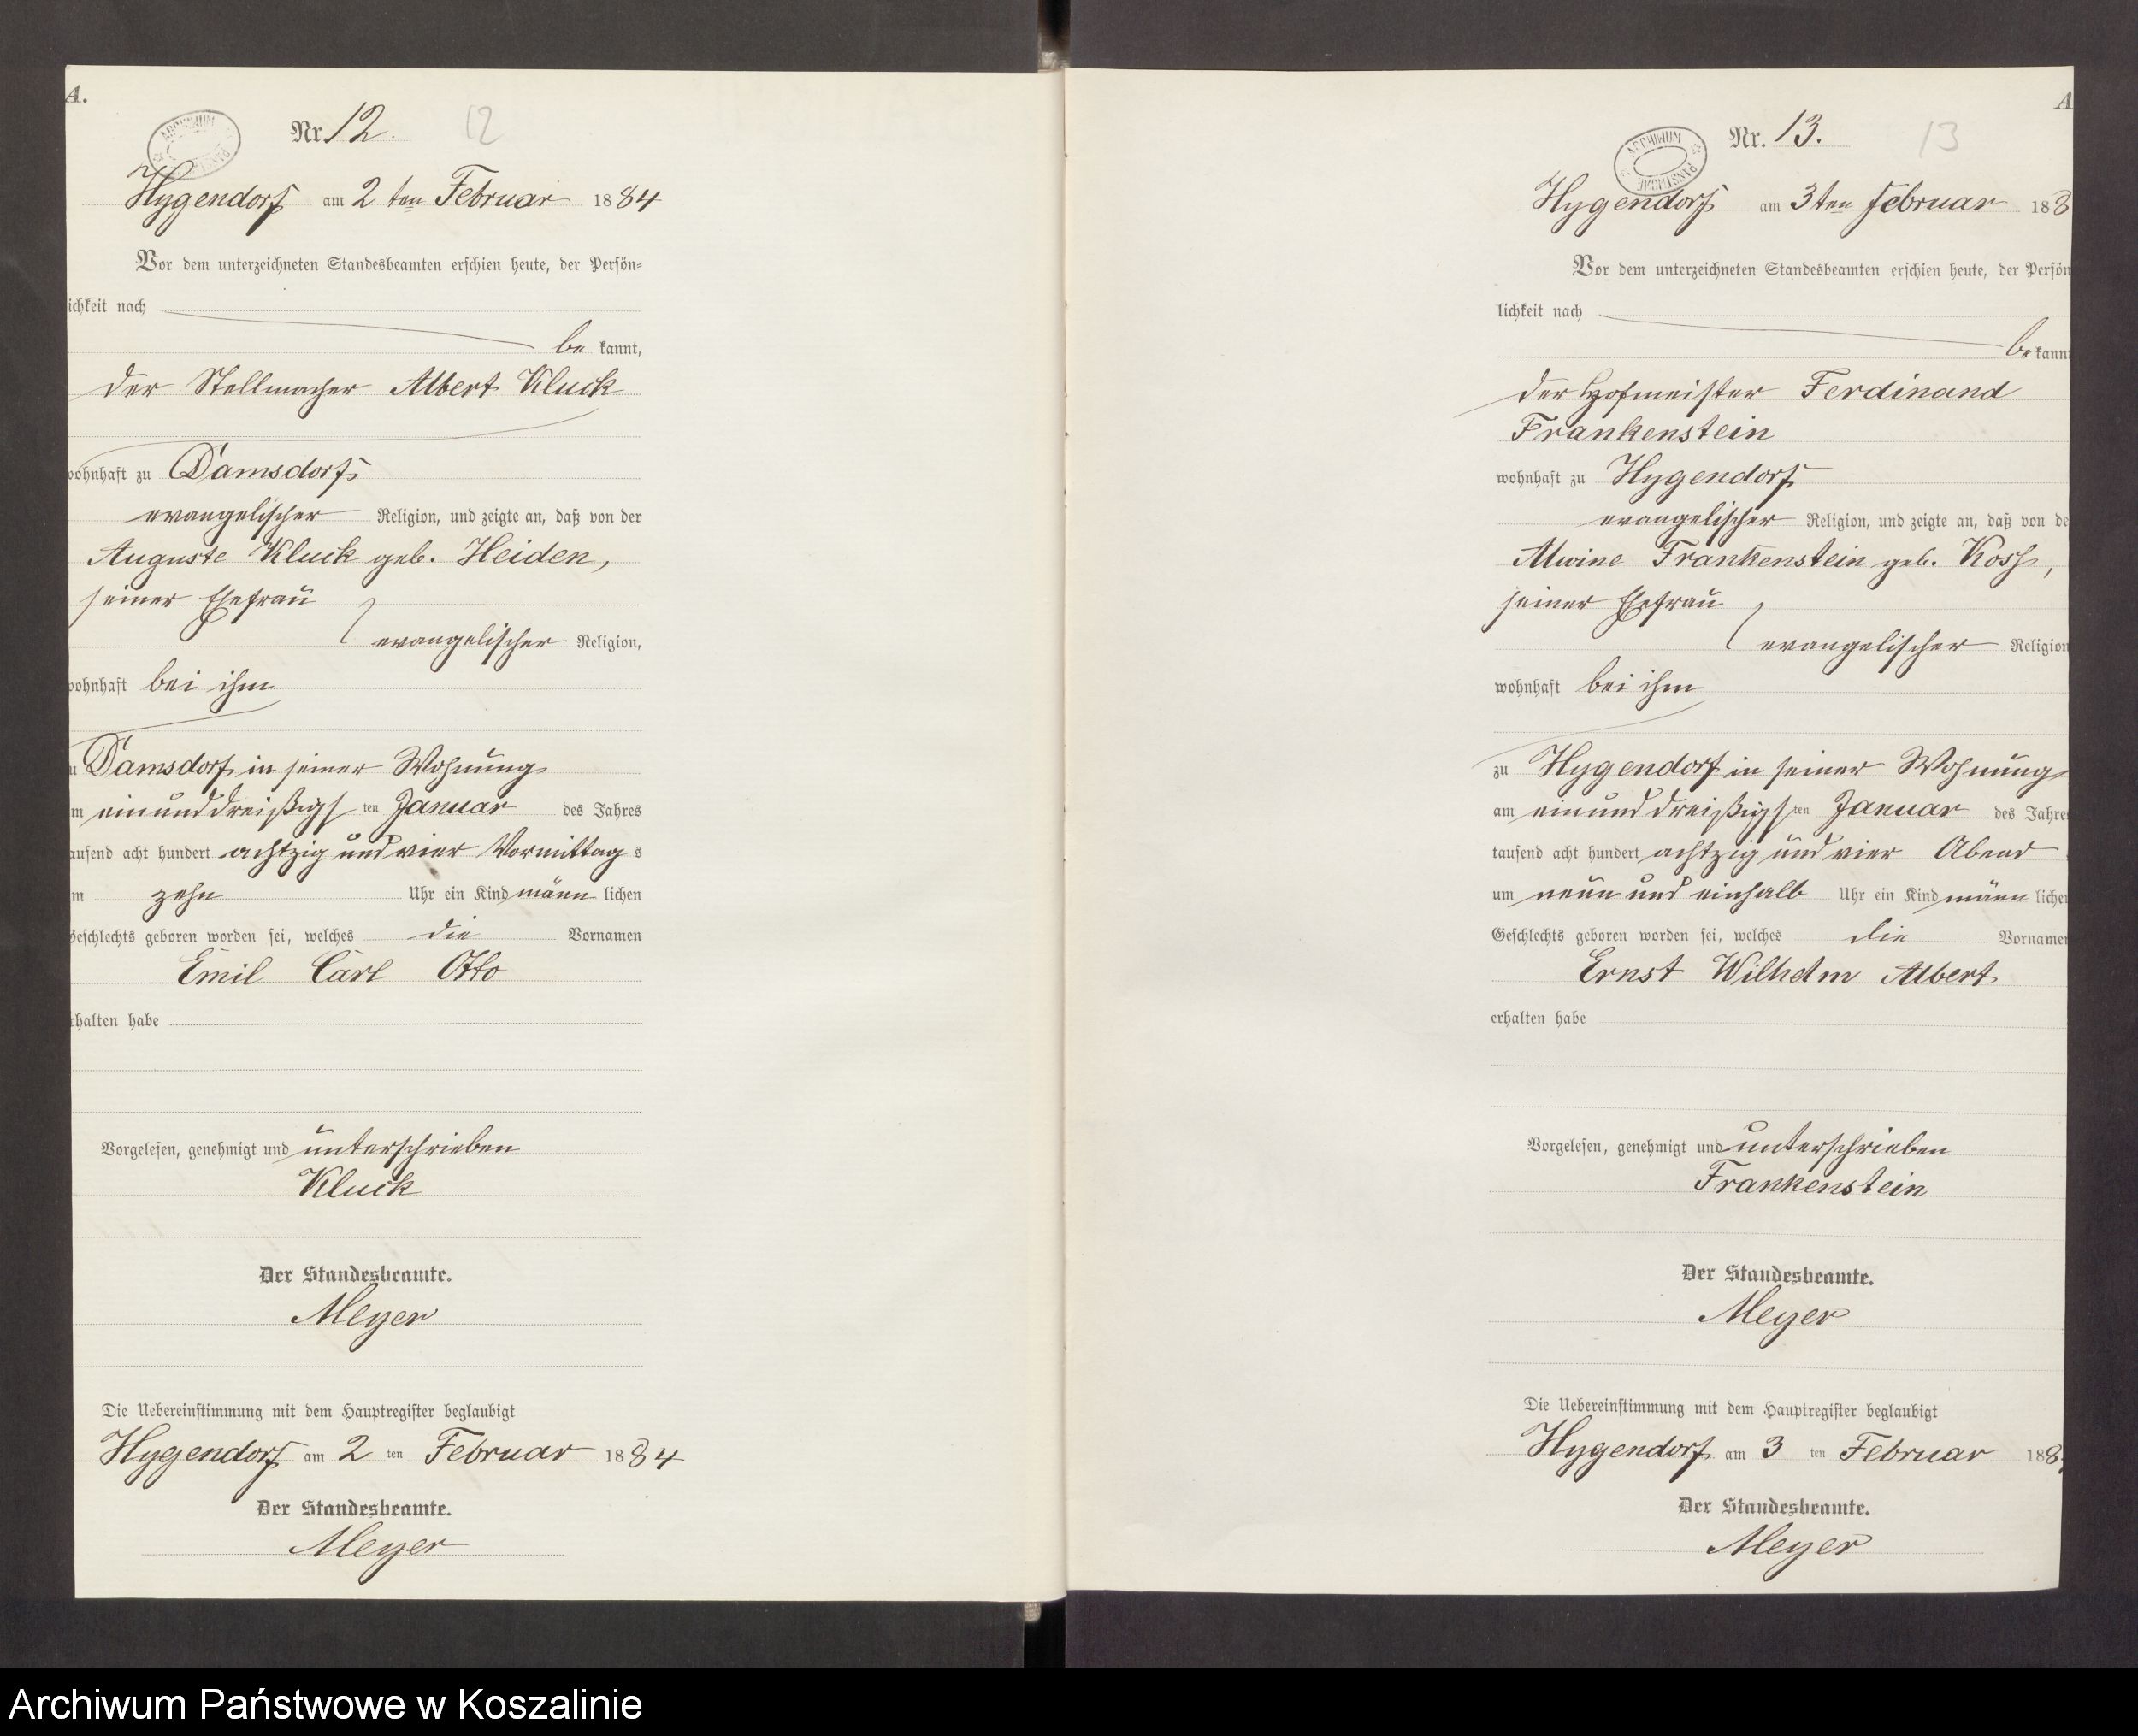 A.
Nr. 12. 12
ARCHIWUM PAŃSTWOWE
Hygendorf am 2 ten Februar 1884
Vor dem unterzeichneten Standesbeamten erschien heute, der Persön-
ichkeit nach
be kannt,
der Stellmacher Albert Kluck
wohnhaft zu Damsdorf
evangelischer Religion, und zeigte an, daß von der
Auguste Kluck geb. Heiden,
seiner Ehefrau
evangelischer Religion,
wohnhaft bei ihm
u Damsdorf in seiner Wohnung
m einunddreißigs ten Januar des Jahres
ausend acht hundert achtzig und vier Vormittag s
m zehn Uhr ein Kind männ lichen
Geschlechts geboren worden sei, welches die Vornamen
Emil Carl Otto
rhalten habe
Vorgelesen, genehmigt und unterschrieben
Kluck
Der Standesbeamte.
Meyer
Die Uebereinstimmung mit dem Hauptregister beglaubigt
Hygendorf am 2 ten Februar 1884
Der Standesbeamte.
Meyer
A
Nr. 13. 13
ARCHIWUM PAŃSTWOWE
Hygendorf am 3ten Februar 188
Vor dem unterzeichneten Standesbeamten erschien heute, der Persön
lichkeit nach
be kannt
der Hofmeister Ferdinand
Frankenstein
wohnhaft zu Hygendorf
evangelischer Religion, und zeigte an, daß von de
Alwine Frankenstein geb. Koss,
seiner Ehefrau
evangelischer Religion
wohnhaft bei ihm
zu Hygendorf in seiner Wohnung
am einunddreißigs ten Januar des Jahre
tausend acht hundert achtzig und vier Abend
um neun und einhalb Uhr ein Kind männ liche
Geschlechts geboren worden sei, welches die Vorname
Ernst Wilhelm Albert
erhalten habe
Vorgelesen, genehmigt und unterschrieben
Frankenstein
Der Standesbeamte.
Meyer
Die Uebereinstimmung mit dem Hauptregister beglaubigt
Hygendorf am 3 ten Februar 188
Der Standesbeamte.
Meyer
Archiwum Państwowe w Koszalinie